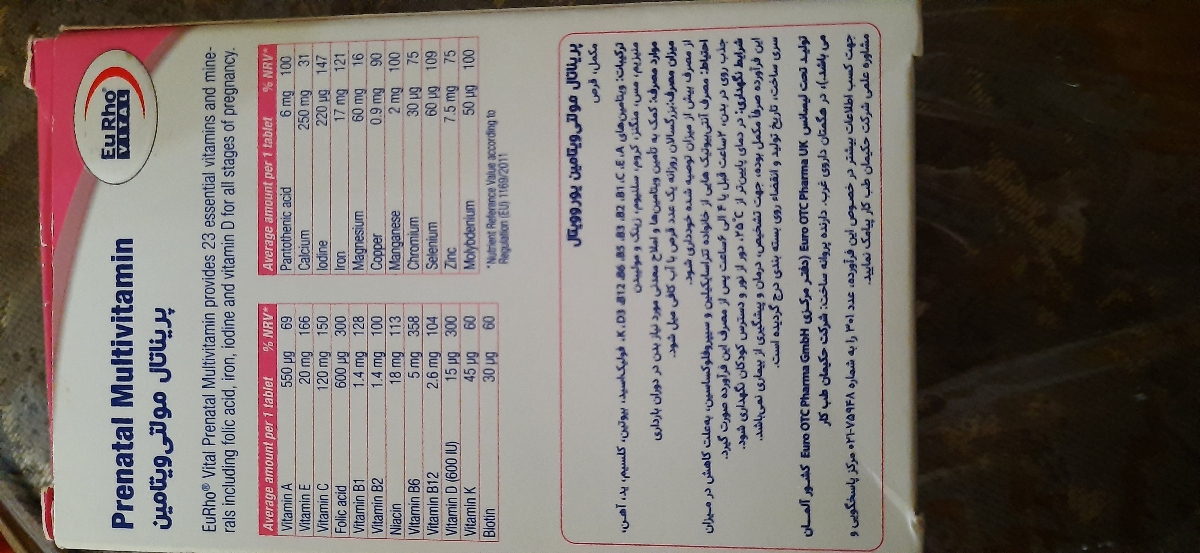 EuRho®
VITAL
Prenatal Multivitamin
پریناتال مولتی‌ویتامین
EuRho® Vital Prenatal Multivitamin provides 23 essential vitamins and mine-
rals including folic acid, iron, iodine and vitamin D for all stages of pregnancy.
Average amount per 1 tablet % NRV*
Vitamin A 550 µg 69
Vitamin E 20 mg 166
Vitamin C 120 mg 150
Folic acid 600 µg 300
Vitamin B1 1.4 mg 128
Vitamin B2 1.4 mg 100
Niacin 18 mg 113
Vitamin B6 5 mg 358
Vitamin B12 2.6 mg 104
Vitamin D (600 IU) 15 µg 300
Vitamin K 45 µg 60
Biotin 30 µg 60
Average amount per 1 tablet % NRV*
Pantothenic acid 6 mg 100
Calcium 250 mg 31
Iodine 220 µg 147
Iron 17 mg 121
Magnesium 60 mg 16
Copper 0.9 mg 90
Manganese 2 mg 100
Chromium 30 µg 75
Selenium 60 µg 109
Zinc 7.5 mg 75
Molybdenium 50 µg 100
*Nutrient Reference Value according to
Regulation (EU) 1169/2011
پریناتال مولتی‌ویتامین یوروویتال
مکمل، قرص
ترکیبات: ویتامین‌های A، E، C، B1، B2، B3، B5، B6، B12، D3، K، فولیک‌اسید، بیوتین، کلسیم، ید، آهن،
منیزیم، مس، منگنز، کروم، سلنیوم، زینک و مولیبدن
موارد مصرف: کمک به تامین ویتامین‌ها و املاح معدنی مورد نیاز بدن در دوران بارداری
میزان مصرف: بزرگسالان روزانه یک عدد قرص با آب کافی میل شود.
از مصرف بیش از میزان توصیه شده خودداری شود.
احتیاط: مصرف آنتی‌بیوتیک هایی از خانواده تتراسایکلین و سیپروفلوکساسین، به‌علت کاهش در میزان
جذب روی در بدن، ۲ ساعت قبل یا ۴ الی ۶ ساعت پس از مصرف این فرآورده صورت گیرد.
شرایط نگهداری: در دمای پایین‌تر از ۲۵°C، دور از نور و دسترس کودکان نگهداری شود.
این فرآورده صرفاً مکمل بوده، جهت تشخیص، درمان و پیشگیری از بیماری نمی‌باشد.
سری ساخت، تاریخ تولید و انقضاء روی بسته بندی درج گردیده است.
تولید تحت لیسانس Euro OTC Pharma UK (دفتر مرکزی Euro OTC Pharma GmbH کشور آلمان
می باشد)، در هگمتان داروی غرب. دارنده پروانه ساخت: شرکت حکیمان طب کار
جهت کسب اطلاعات بیشتر در خصوص این فرآورده، عدد ۳۰۱ را به شماره ۰۲۱-۷۵۹۴۸ مرکز پاسخگویی و
مشاوره علمی شرکت حکیمان طب کار پیامک نمایید.